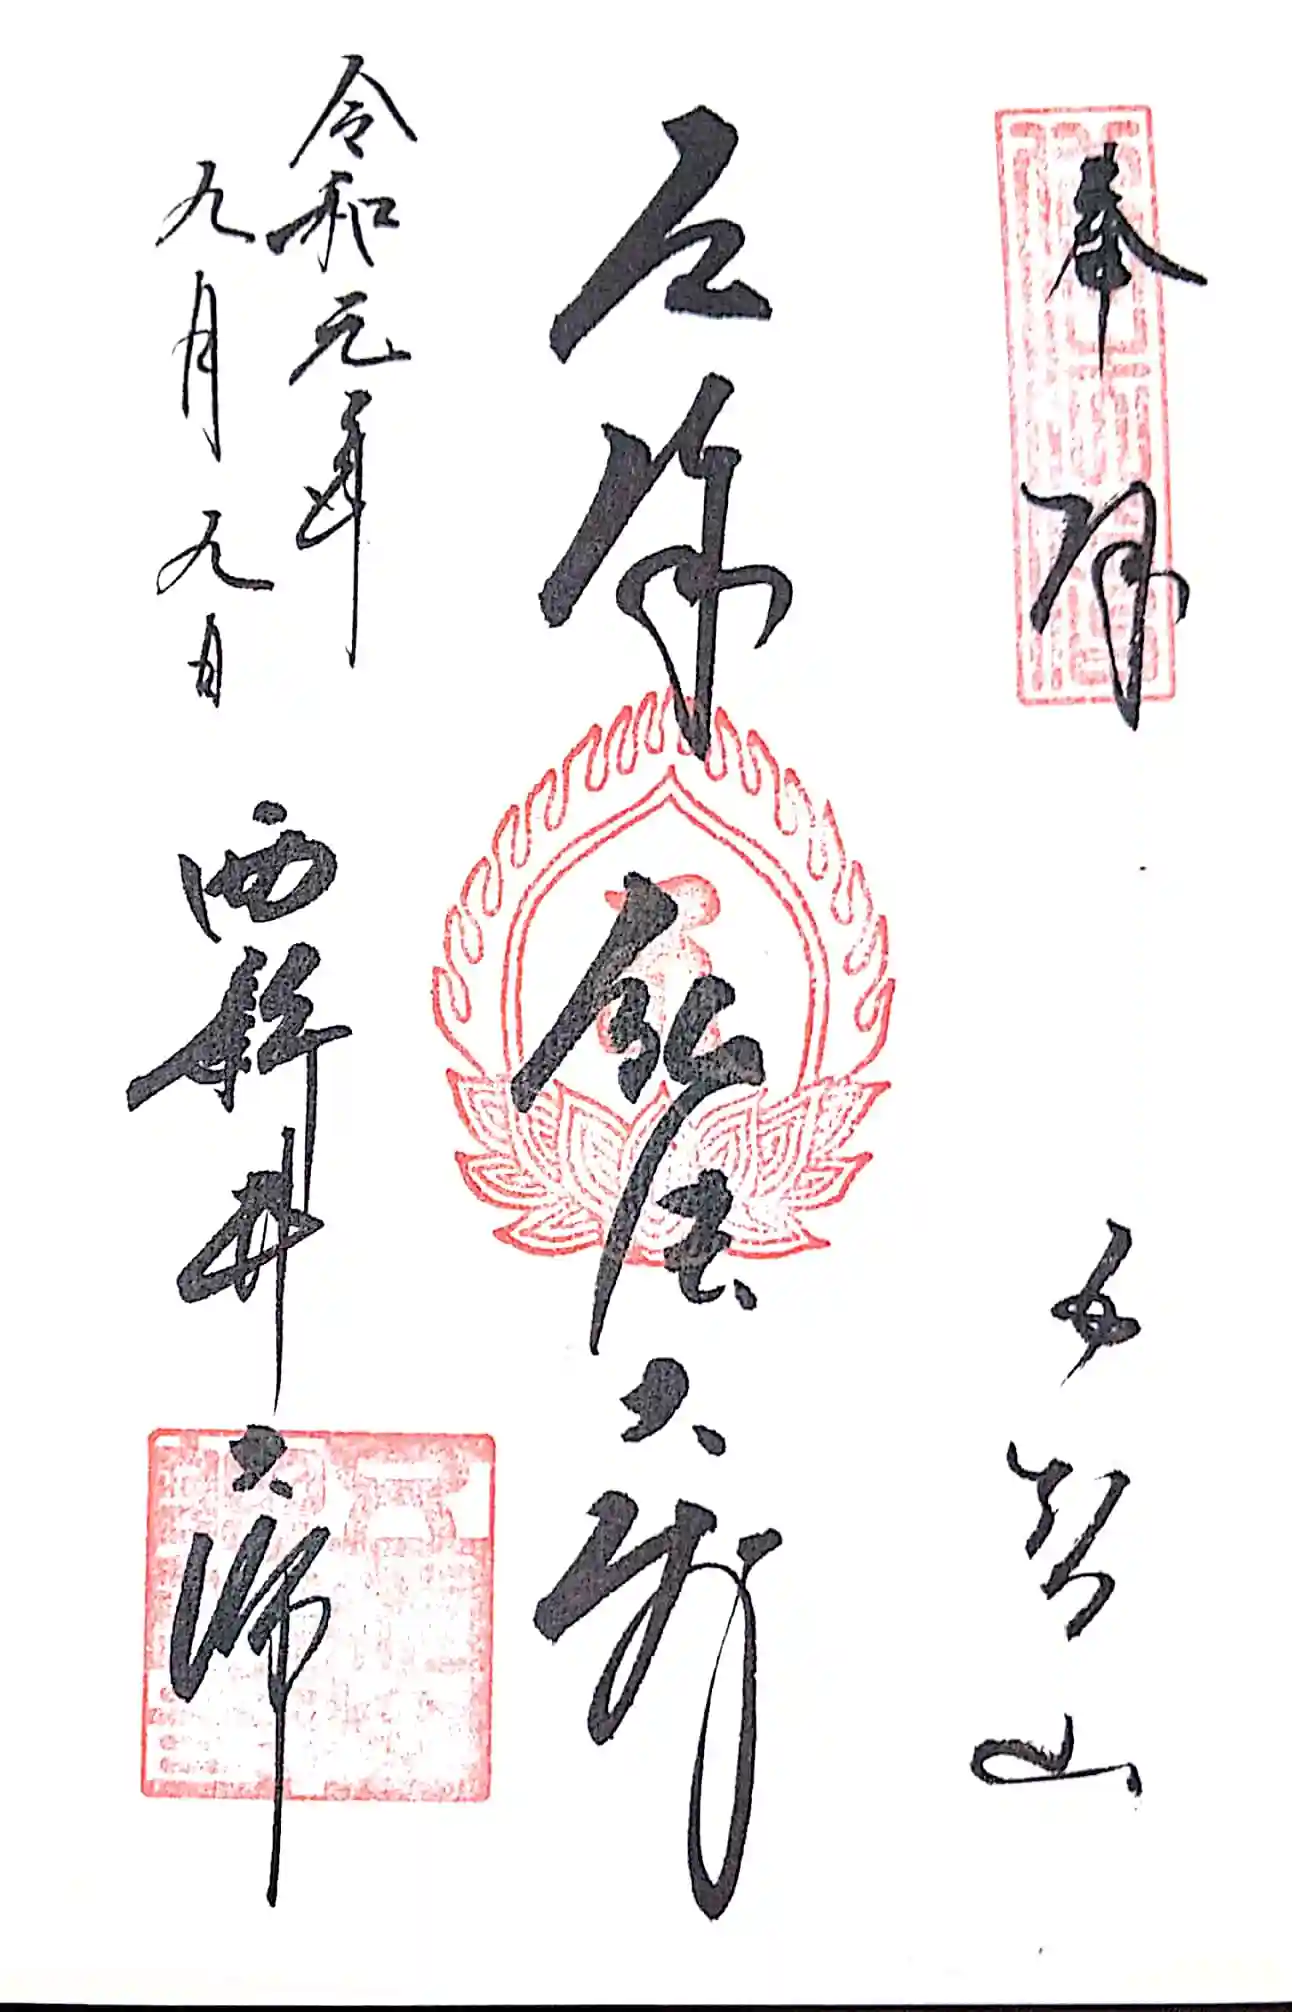 奉拝　五智山
厄除弘法大師
令和元年
九月九日
西新井大師